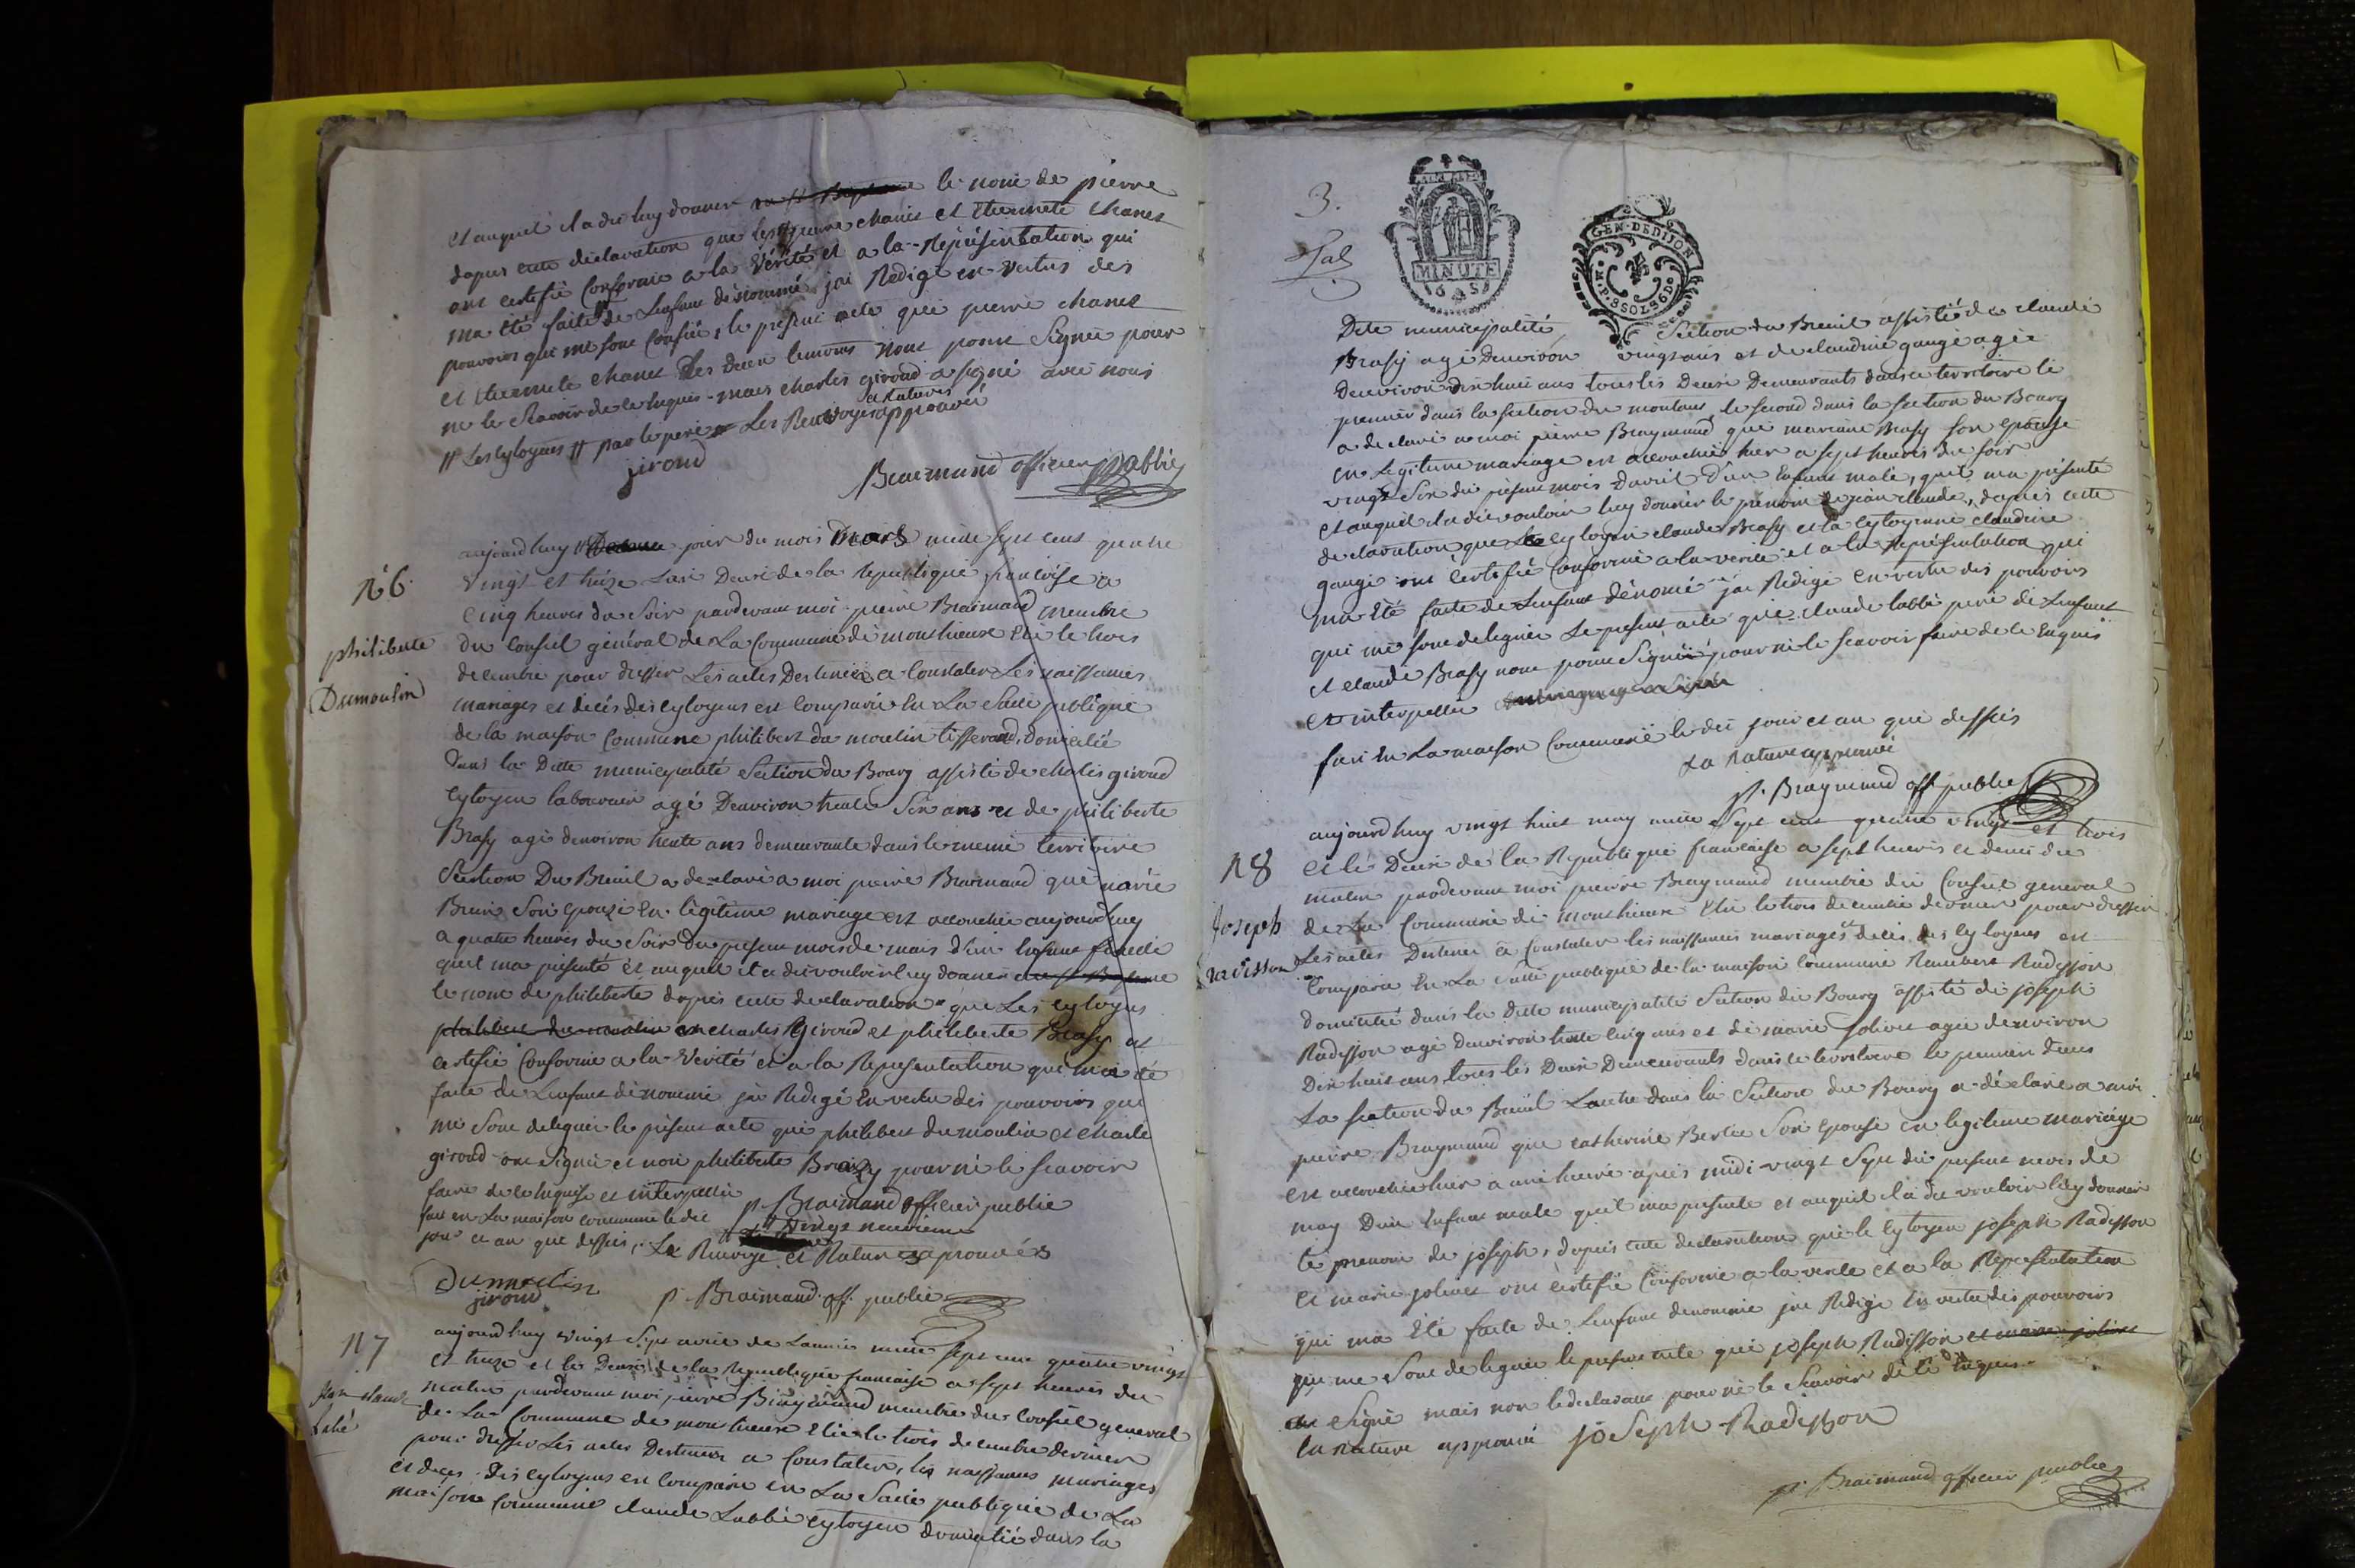 et auquel il a dit luy donner le nom de pierre
dapres cette déclaration que les pierre chanet et Etiennette chanet
ont certifié Conforme a la Vérité et a la Représintation qui
ma été faite de Lenfant dénommé, jai Redigé en vertus des
pouvoirs qui me sont Confiée, le present acte que pierre chanet
et Etiennete chanet Les deux temoins nont point Signée pour
ne le scavoir de ce Requis mais charles giroud a signé avec nous
Les Cytoyens par le pere Les Renvoyes et Ratures approuvée
jiroud
Braimand officier publie
N 6
philiberte
Dumoulin
aujourdhuy jour du mois Mars mille sept cent quatre
vingt et treize Lan Deuxe de la Republique francoise a
Cinq heures du Soir pardevant moi pierre Braimand membre
du Conseil général de La Commune de monthieux Elu le trois
decembre pour dresser Les actes Destinée a Constater Les naissances
mariages et décés des cytoyens est Comparû En La Salle publique
de la maison Commune philibert du moulin tisserand, domicilié
Dans la Ditte municipalité Section du Bourg assisté de charles giroud
Cytoyen laboureur agé Denviron trente Six ans et de philiberte
Brasy agé denviron trente ans demeurante dans le meme territoire
Section Du Breuil a declaré a moi pierre Braimand que marie
Brun Son epouze En légitime mariage est accouchée aujourdhuy
a quatre heures du Soir du present mois de mars dun Enfant femele
quil ma présenté et auquel il a dit vouloir luy donner
le nom de philiberte dapres cette declaration que Les cytoyens
philibert du moulin charles Giroud et philiberte Brasy ont
certifié Conforme a la Verité et a la Representation qui ma été
faite de Lenfant dénommé jai Redigé En vertu des pouvoirs qui
me Sont deleguée le présent acte que philibert du moulin et charle
giroud ont Signée et non philiberte Brazy pour ne le scavoir
faire de ce Requise et interpellée
fait en La maison commune le dit
jour et an que dessus, Le Renvoye et Ratures aprouvées
p. Braimand officier publie
vingt neuvieme
Dumoulin
jiroud
p. Braimand off. publie
N 7
jean claude
Labé
aujourdhuy vingt Sept avril de Lannée mille sept cent quatre vingt
et treize et le Deuxe de la Republique francaise a Sept heures du
matin pardevant moi pierre Braymand membre du Conseil general
de La Commune de monthieux Elu le trois decembre dernier
pour dresser Les actes Destinée a Constater, les naissances mariages
et deces des cytoyens est Comparû en La Salle publique de La
maison Commune claude Labbé cytoyen domicilié dans la
3.
MINUTE
GEN. DE DIJON
Dite municipalité Section du Breuil assisté de claude
Brasy agé Denviron vingt ans et de claudine gange agée
Denviron dix huit ans tous les Deux Demeurants dans ce territoire le
premier dans la section du montant, le second dans la section du Bourg
a declaré a moi pierre Braymand que mariane Brasy son epouse
en Legitime mariage est accouchée hier a sept heures du soir
vingt Six du present mois davril Dun Enfant male, quil ma présenté
et auquel il a dit vouloir luy donner le prénom de jean claude, dapres cette
declaration, que le cytoyen claude Brasy et la cytoyenne claudine
gange ont Certifié Conforme a la verité et a la représentation qui
ma été faite de Lenfant dénomé jai Redigé en vertu des pouvoirs
qui me sont deleguée Le present acte que claude labbé pere de Lenfant
et claude Brasy nont point Signée pour ne le scavoir faire de ce Requis
et interpellée
fait En La maison Commune le dit jour et an que dessus
La Rature approuvée
p. Braymand off publie
N 8
Joseph
radisson
aujourdhuy vingt huit may mille Sept cent quatre vingt et trois
et le Deuxe de la Republique francaise a sept heures et demi du
matin pardevant moi pierre Braymand membre du Conseil general
de La Commune de monthieux Elu le trois decembre dernier pour dresser
Les actes Destinée a Constater les naissances mariages et décés des cytoyens est
Comparû En La Salle publique de la maison Commune Rambert Radisson
domicilié dans la Dite municipalité Section du Bourg assisté de joseph
Radisson agé denviron trente Cinq ans et de marie jolivet agée denviron
Dix huit ans tous les Deux Demeurants dans ce territoire le premier dans
La section du Breuil Lautre dans la Section du Bourg a déclaré a moi
pierre Braymand que catherine Berlie Son epouse en legitime mariage
est accouchée hier a une heure apres midi vingt Sept du present mois de
may Dun Enfant male quil ma presenté et auquel il a dit vouloir luy donner
le prenom de joseph, dapres cette declaration que le cytoyen joseph Radisson
et marie jolivet ont certifié Conforme a la verité et a la Representation
qui ma Eté faite de Lenfant denommé jai Redigé En vertu des pouvoirs
qui me Sont deleguée le present acte que joseph Radisson et marie jolivet
a Signé mais non le declarant pour ne le Scavoir de ce Requis
la Rature approuvé joseph Radisson
p. Braimand officier publie